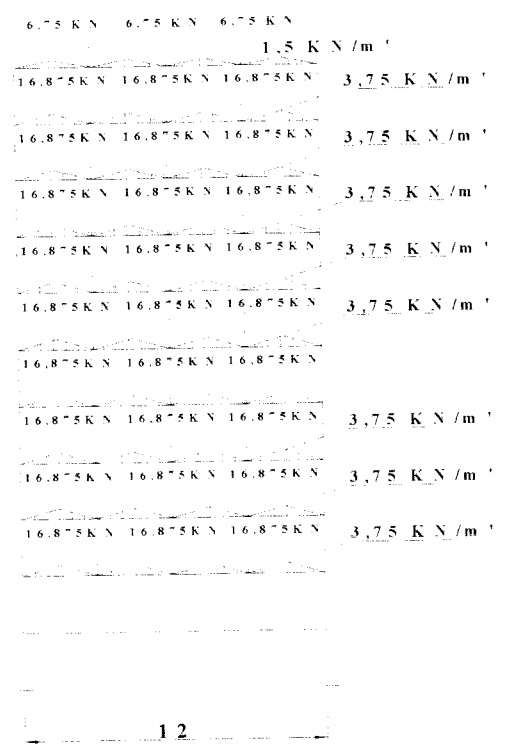 6.75 KN 6.75 KN 6.75 KN
1,5 KN/m'
16.875KN 16.875KN 16.875KN 3,75 KN/m'
16.875KN 16.875KN 16.875KN 3,75 KN/m'
16.875KN 16.875KN 16,875KN 3,75 KN/m'
16.875KN 16.875KN 16.875KN 3,75 KN/m'
16.875KN 16.875KN 16.875KN 3,75 KN/m'
16.875KN 16.875KN 16.875KN
16.875KN 16.875KN 16.875KN 3,75 KN/m'
16.875KN 16.875KN 16.875KN 3,75 KN/m'
16.875KN 16.875KN 16.875KN 3,75 KN/m'
12